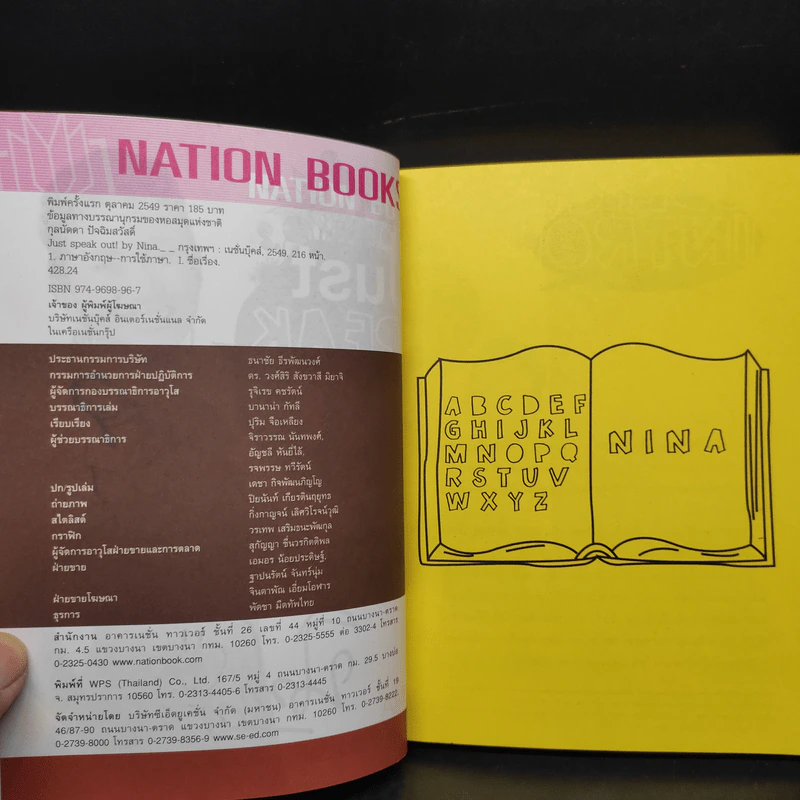 NATION BOOKS
พิมพ์ครั้งแรก ตุลาคม 2549 ราคา 185 บาท
ข้อมูลทางบรรณานุกรมของหอสมุดแห่งชาติ
กุลนัดดา ปัจฉิมสวัสดิ์
Just speak out! by Nina._ _ กรุงเทพฯ : เนชั่นบุ๊คส์, 2549. 216 หน้า.
1. ภาษาอังกฤษ--การใช้ภาษา. I. ชื่อเรื่อง.
428.24
ISBN 974-9698-96-7
เจ้าของ ผู้พิมพ์ผู้โฆษณา
บริษัทเนชั่นบุ๊คส์ อินเตอร์เนชั่นแนล จำกัด
ในเครือเนชั่นกรุ๊ป
ประธานกรรมการบริษัท ธนาชัย ธีรพัฒนวงศ์
กรรมการอำนวยการฝ่ายปฏิบัติการ ดร. วงศ์สิริ สังขวาสี มิยาจิ
ผู้จัดการกองบรรณาธิการอาวุโส รุจิเรข คชรัตน์
บรรณาธิการเล่ม บานาน่า กัทลี
เรียบเรียง ปุริม จือเหลียง
ผู้ช่วยบรรณาธิการ จิราวรรณ นันทพงศ์,
อัญชลี ทันยี่ไล้,
รจพรรษ ทวีรัตน์
ปก/รูปเล่ม เตชา กิจพัฒนภิญโญ
ถ่ายภาพ ปิยนันท์ เกียรตินฤยุทธ
สไตลิสต์ กิ่งกาญจน์ เลิศวิโรจน์วุฒิ
กราฟิก วรเทพ เสริมธนะพัฒกุล
ผู้จัดการอาวุโสฝ่ายขายและการตลาด สุกัญญา ชื่นวรกิตติพล
ฝ่ายขาย เอมอร น้อยประดิษฐ์,
ฐาปนรัตน์ จันทร์นุ่ม
ฝ่ายขายโฆษณา จินตาพัณ เอี่ยมโอฬาร
ธุรการ พัดชา มีดทัพไทย
สำนักงาน อาคารเนชั่น ทาวเวอร์ ชั้นที่ 26 เลขที่ 44 หมู่ที่ 10 ถนนบางนา-ตราด
กม. 4.5 แขวงบางนา เขตบางนา กทม. 10260 โทร. 0-2325-5555 ต่อ 3302-4 โทรสาร
0-2325-0430 www.nationbook.com
พิมพ์ที่ WPS (Thailand) Co., Ltd. 167/5 หมู่ 4 ถนนบางนา-ตราด กม. 29.5 บางบ่อ
จ. สมุทรปราการ 10560 โทร. 0-2313-4405-6 โทรสาร 0-2313-4445
จัดจำหน่ายโดย บริษัทซีเอ็ดยูเคชั่น จำกัด (มหาชน) อาคารเนชั่น ทาวเวอร์ ชั้นที่ 19
46/87-90 ถนนบางนา-ตราด แขวงบางนา เขตบางนา กทม. 10260 โทร. 0-2739-8222,
0-2739-8000 โทรสาร 0-2739-8356-9 www.se-ed.com
A B C D E F
G H I J K L
M N O P Q
R S T U V
W X Y Z
NINA